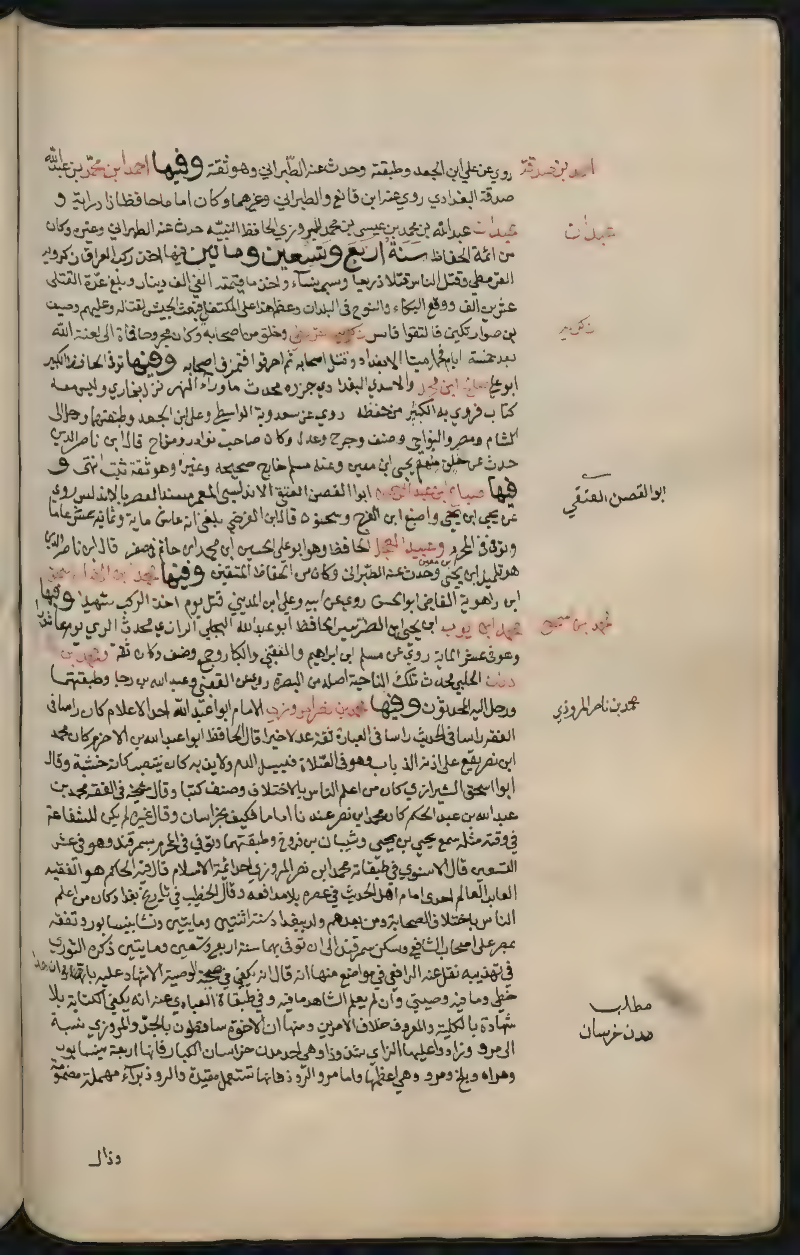 روي عن علي ابن الجعد وطبقته وحدث عنه الطبراني وهو ثقة وفيها احمد ابن محمد بن عبد الله
صدقة البغدادي روي عنه ابن قانع والطبراني وغيرهما وكان اماما حافظا ذا دراية و
عبدان عبد الله بن محمد بن عيسى بن محمد المروزي الحافظ النبيه حدث عنه الطبراني وغيره وكان
من ائمة الحفاظ سنة اربع وتسعين ومايتين فيها اخذ ركب العراق زكرويه
القرمطي وقتل الناس قتلا ذريعا وسبى نساء واخذ ما قيمته الفي الف دينار وبلغ عدة القتلى
عشرين الف ووقع البكاء والنوح في البلدان وعظم هذا على المكتفي فبعث الجيش لقتاله وعليهم وصيف
بن صوارتكين فالتقوا فاسر وخلق من اصحابه وكان مجروحا فمات الى لعنة الله
بعد خمسة ايام فحمل ميتا الى بغداد وقتل اصحابه ثم احرقوا وتمزق اصحابه وفيها توفي الحافظ الكبير
ابو علي صالح ابن محمد الاسدي البغدادي جزره محدث ما وراء النهر نزل بخاري وليس معه
كتاب فروي بها الكثير من حفظه روي عن سعدوية الواسطي وعلي ابن الجعد وطبقتهما ورحل الى
الشام ومصر والنواحي وصنف وجرح وعدل وكان صاحب نوادر ومزاح قال ابن ناصر الدين
حدث عن خلق منهم يحيى ابن معين وعنه مسلم خارج صحيحه وغيره وهو ثقة ثبت انتهى و
فيها صباح بن عبد الرحمن ابو القصن العتقي الاندلسي المعمر مسند العصر بالاندلس روي
عن يحيى ابن يحيى واصبغ ابن الفرج وسحنون قال ابن الفرضي بلغني انه عاش ماية وثمانية عشر عاما
وتوفي في المحرم وعبيد العجل الحافظ وهو ابو علي الحسين ابن محمد ابن حاتم في صفر قال ابن ناصر الدين
هو تلميذ ابن يحيى بن معين وحدث عنه الطبراني وكان من الحفاظ المتقنين وفيها محمد بن اسحاق
ابن راهوية القاضي ابو الحسن روي عن ابيه وعلي ابن المديني قتل يوم اخذ الركب شهيدا وفيها
محمد ابن ايوب ابن يحيى ابن الضريس الحافظ ابو عبد الله البجلي الرازي محدث الري يوم عاشورا
وهو في عشر الماية روي عن مسلم ابن ابراهيم والقعنبي والكبار وجمع وصنف وكان ثقة وفيها محمد بن
الحلبي محدث تلك الناحية اصله من البصرة روي عن القعنبي وعبد الله بن رجا وطبقتهما
ورحل اليه المحدثون وفيها محمد بن نصر المروزي الامام ابو عبد الله احد الاعلام كان راسا في
الفقه راسا في الحديث راسا في العبادة ثقة عدلا خيرا قال الحافظ ابو عبد الله بن الاخرم كان محمد
ابن نصر يقع على اذنه الذباب وهو في الصلاة فيسيل الدم ولا يذبه كان ينتصب كانه خشبة وقال
ابو اسحق الشيرازي كان من اعلم الناس بالاختلاف وصنف كتبا وقال شيخه في الفقه محمد بن
عبد الله بن عبد الحكم كان محمد ابن نصر عندنا اماما فكيف بخراسان وقال غيره لم يكن للشافعية
في وقته مثله سمع يحيى بن يحيى وشيبان بن فروخ وطبقتهما وتوفي في المحرم بسمرقند وهو في عشر
التسعين قال الاسنوي في طبقاته محمد ابن نصر المروزي احد ائمة الاسلام قال فيه الحاكم هو الفقيه
العابد العالم احدى امام اهل الحديث في عصره بلا مدافعة وقال الخطيب في تاريخ بغداد كان من اعلم
الناس باختلاف الصحابة ومن بعدهم ولد ببغداد سنة اثنتين ومايتين ونشا بنيسابور وتفقه
بمصر على اصحاب الشافعي وسكن سمرقند الى ان توفي بها سنة اربع وتسعين ومايتين ذكره النووي
في تهذيبه نقل عنه الرافعي في مواضع منها انه قال انه يكفي في صحة الوصية الاشهاد عليه بان هذا
خطي وما فيه وصيتي وان لم يعلم الشاهد ما فيه وفي طبقات العبادي عنه انه يكفي الكتابة بلا
شهادة بالكلية والمعروف خلاف الامرين ومنها ان الاخوة ساقطون بالجد والمروزي نسبة
الى مرو وزادوا عليها الزاي شذوذا وهي احد مدن خراسان الكبار فانها اربعة نيسابور
وهراه وبلخ ومرو وهي اعظمها واما مرو الروذ فانها تستعمل مقيدة والروذ براء مهملة مضمومة
احمد بن صدقة
عبدان
ابو القصن العتقي
محمد بن ناصر المروزي
مطلب
مدن خرسان
وذال